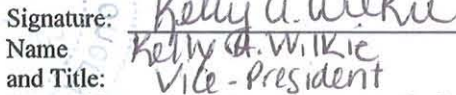 Signature: Kelly A. Wilkie
Name Kelly A. Wilkie
and Title: Vice-President